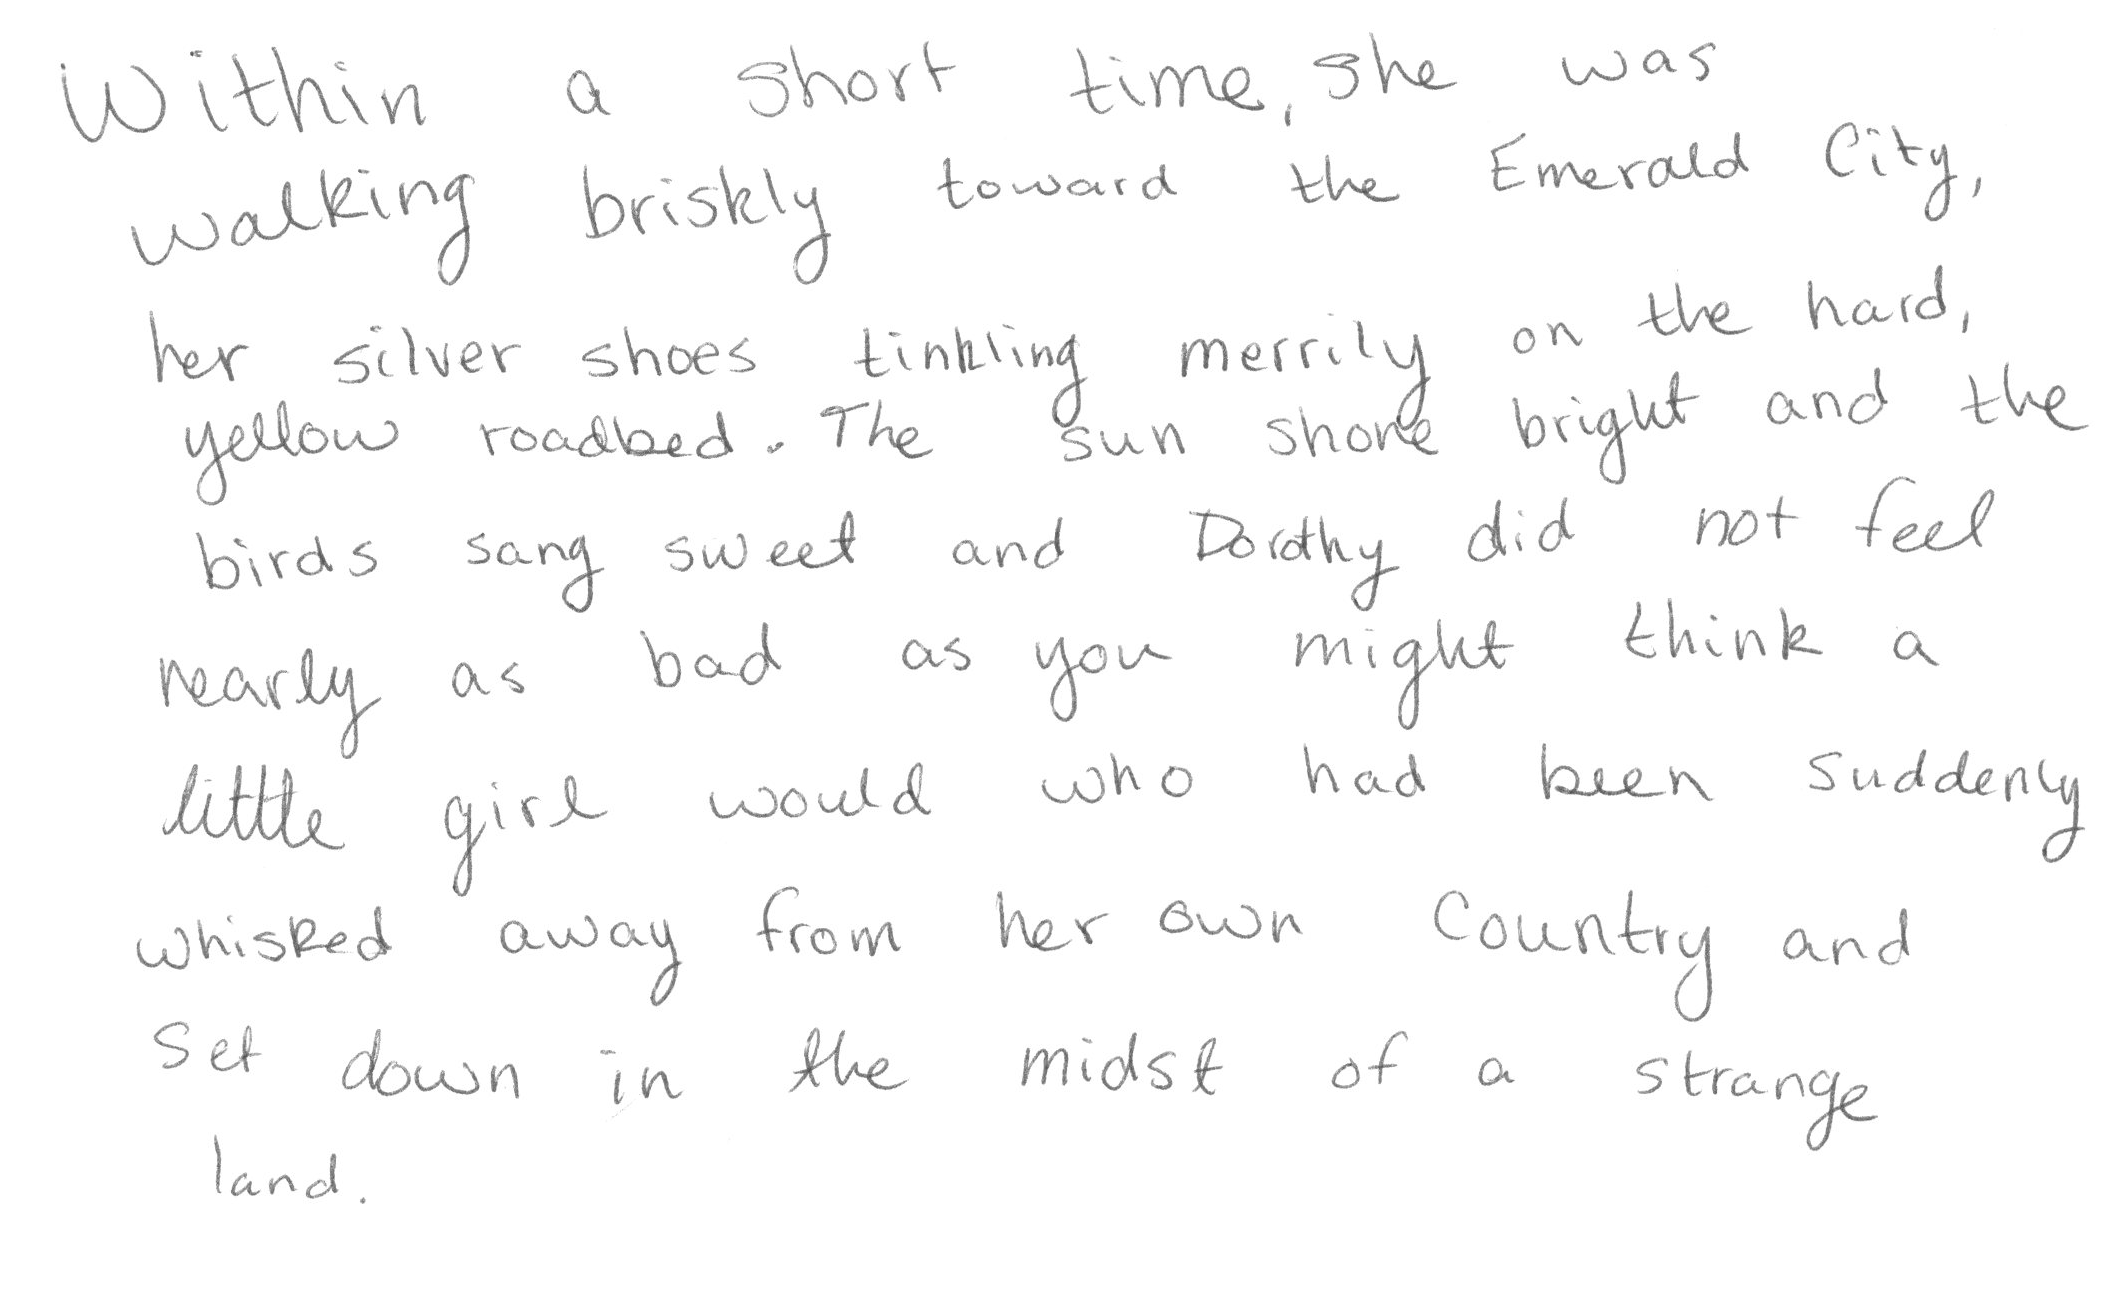 Within a short time, she was
walking briskly toward the Emerald City,
her silver shoes tinkling merrily on the hard,
yellow roadbed. The sun shone bright and the
birds sang sweet and Dorothy did not feel
nearly as bad as you might think a
little girl would who had been suddenly
whisked away from her own country and
set down in the midst of a strange
land.